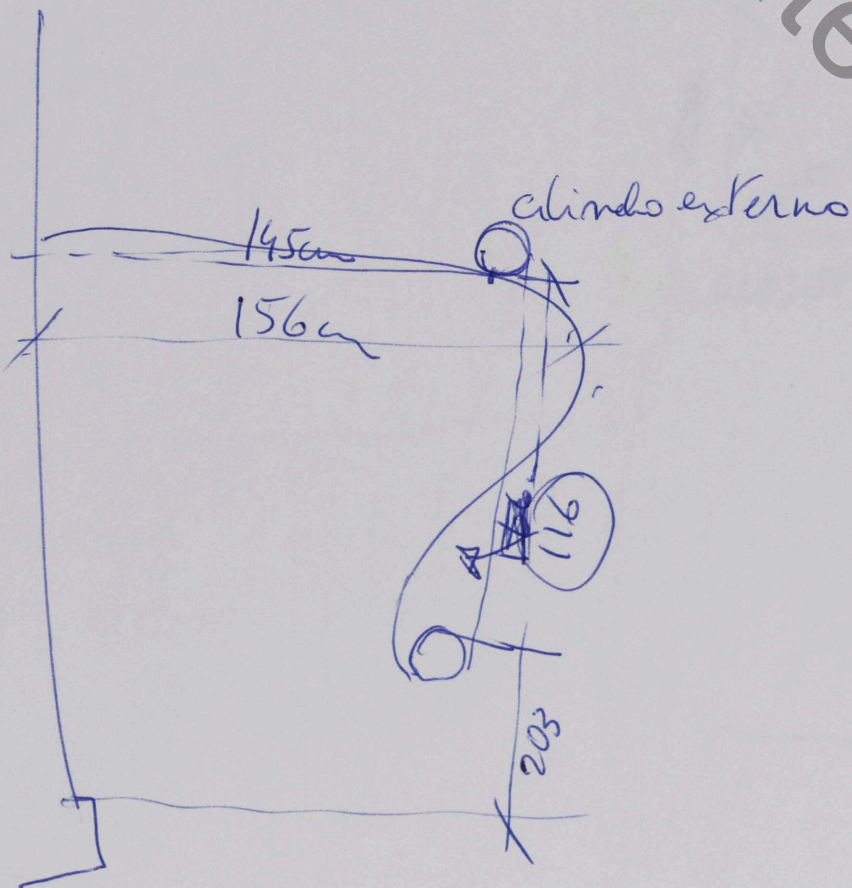 cilindro externo
145cm
156cm
116
203